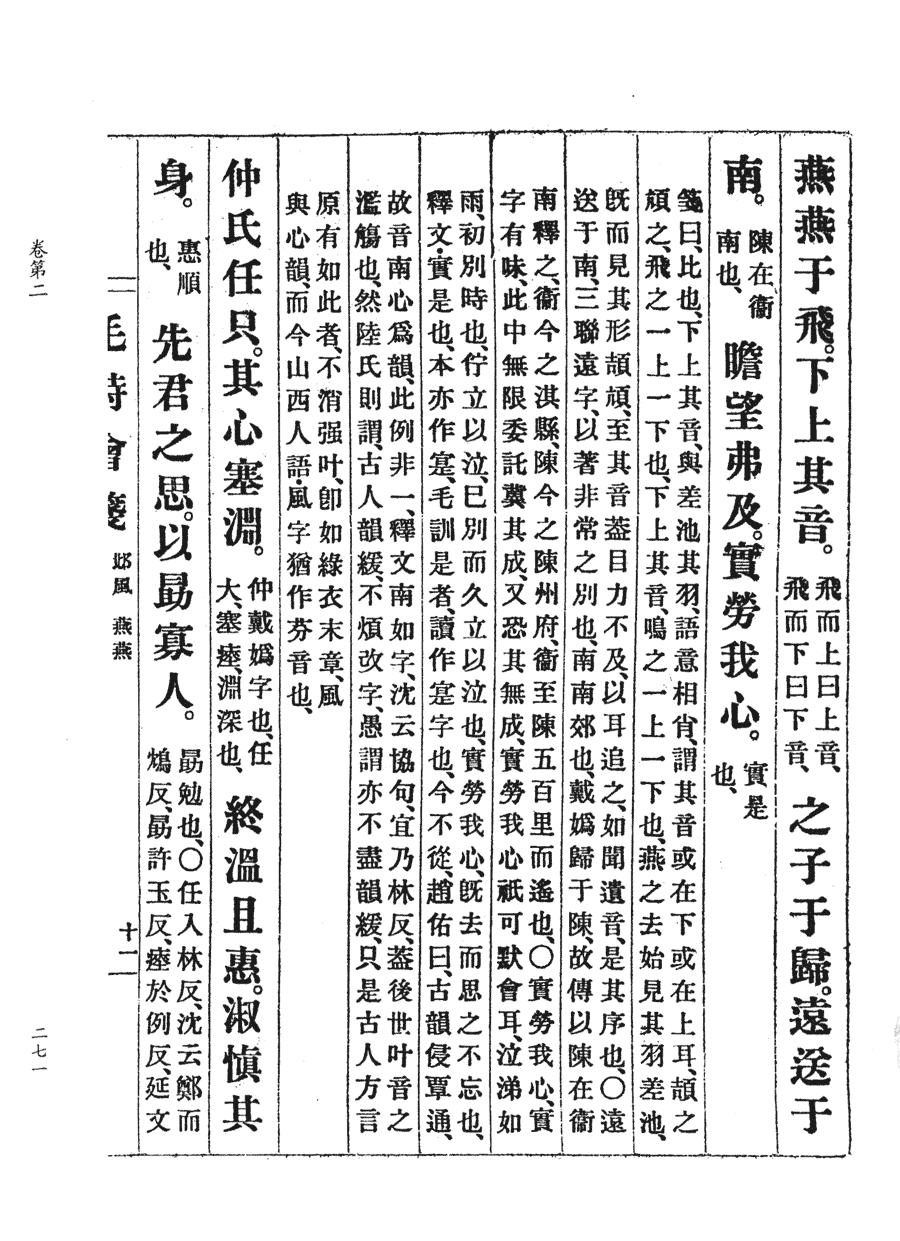 燕燕于飛。下上其音。飛而上曰上音、飛而下曰下音、之子于歸。遠送于
南。陳在衞南也、瞻望弗及。實勞我心。實是也、
箋曰、比也、下上其音、與差池其羽、語意相肖、謂其音或在下或在上耳、頡之
頏之、飛之一上一下也、下上其音、鳴之一上一下也、燕之去始見其羽差池、
旣而見其形頡頏、至其音葢目力不及、以耳追之、如聞遺音、是其序也、〇遠
送于南、三聯遠字、以著非常之別也、南南郊也、戴嬀歸于陳、故傳以陳在衞
南釋之、衞今之淇縣、陳今之陳州府、衞至陳五百里而遙也、〇實勞我心、實
字有味、此中無限委託冀其成、又恐其無成、實勞我心祇可默會耳、泣涕如
雨、初別時也、佇立以泣、已別而久立以泣也、實勞我心、旣去而思之不忘也、
釋文、實是也、本亦作寔、毛訓是者、讀作寔字也、今不從、趙佑曰、古韻侵覃通、
故音南心爲韻、此例非一、釋文南如字、沈云協句、宜乃林反、葢後世叶音之
濫觴也、然陸氏則謂、古人韻緩、不煩改字、愚謂亦不盡韻緩、只是古人方言
原有如此者、不消强叶、卽如綠衣末章、風
與心韻、而今山西人語、風字猶作芬音也、
仲氏任只。其心塞淵。仲戴嬀字也、任大、塞瘞、淵深也、終溫且惠。淑愼其
身。惠順也、先君之思。以勗寡人。勗勉也、〇任入林反、沈云鄭而鴆反、勗許玉反、瘞於例反、延文
毛詩會箋 邶風 燕燕 十二
卷第二
二七一